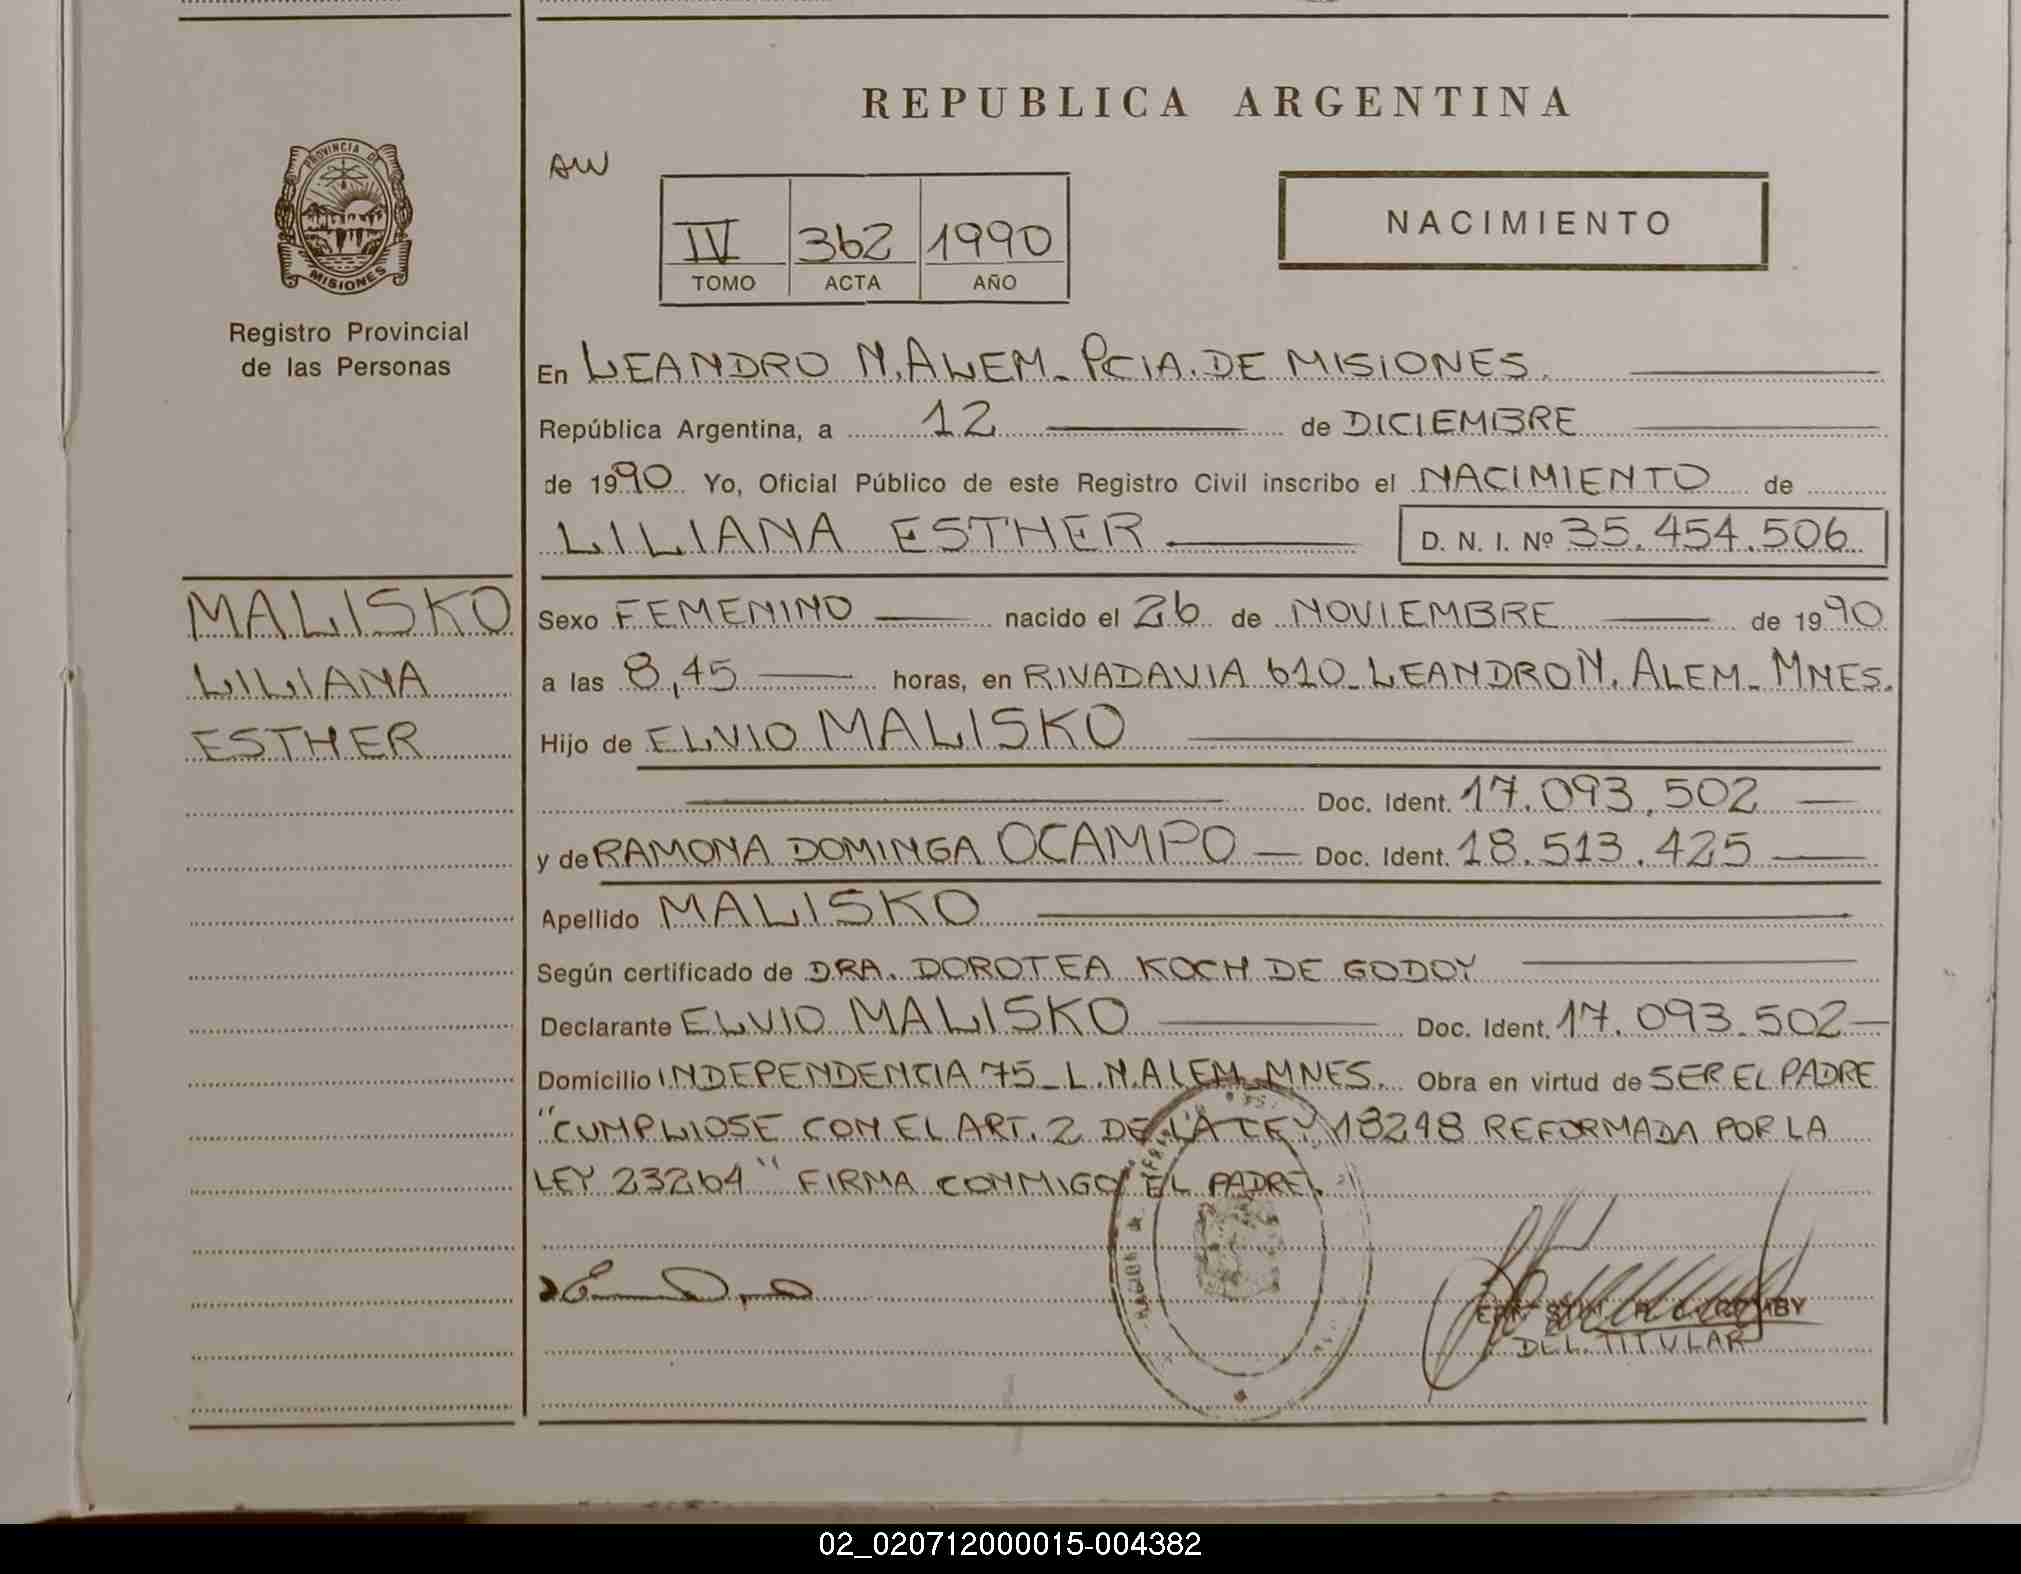 REPUBLICA ARGENTINA
PROVINCIA DE
MISIONES
Registro Provincial
de las Personas
AW
IV 362 1990
TOMO ACTA AÑO
NACIMIENTO
En LEANDRO N. ALEM - PCIA. DE MISIONES.
República Argentina, a 12 de DICIEMBRE
de 1990 Yo, Oficial Público de este Registro Civil inscribo el NACIMIENTO de
LILIANA ESTHER D. N. I. Nº 35.454.506
MALISKO
LILIANA
ESTHER
Sexo FEMENINO nacido el 26 de NOVIEMBRE de 1990
a las 8,45 horas, en RIVADAVIA 610 - LEANDRO N. ALEM - MNES.
Hijo de ELVIO MALISKO
Doc. Ident. 17.093.502
y de RAMONA DOMINGA OCAMPO Doc. Ident. 18.513.425
Apellido MALISKO
Según certificado de DRA. DOROTEA KOCH DE GODOY
Declarante ELVIO MALISKO Doc. Ident. 17.093.502
Domicilio INDEPENDENCIA 75 - L. N. ALEM - MNES. Obra en virtud de SER EL PADRE
"CUMPLIOSE CON EL ART. 2 DE LA LEY 18248 REFORMADA POR LA
LEY 23264" FIRMA CONMIGO EL PADRE.
DEL. TITULAR
02_020712000015-004382